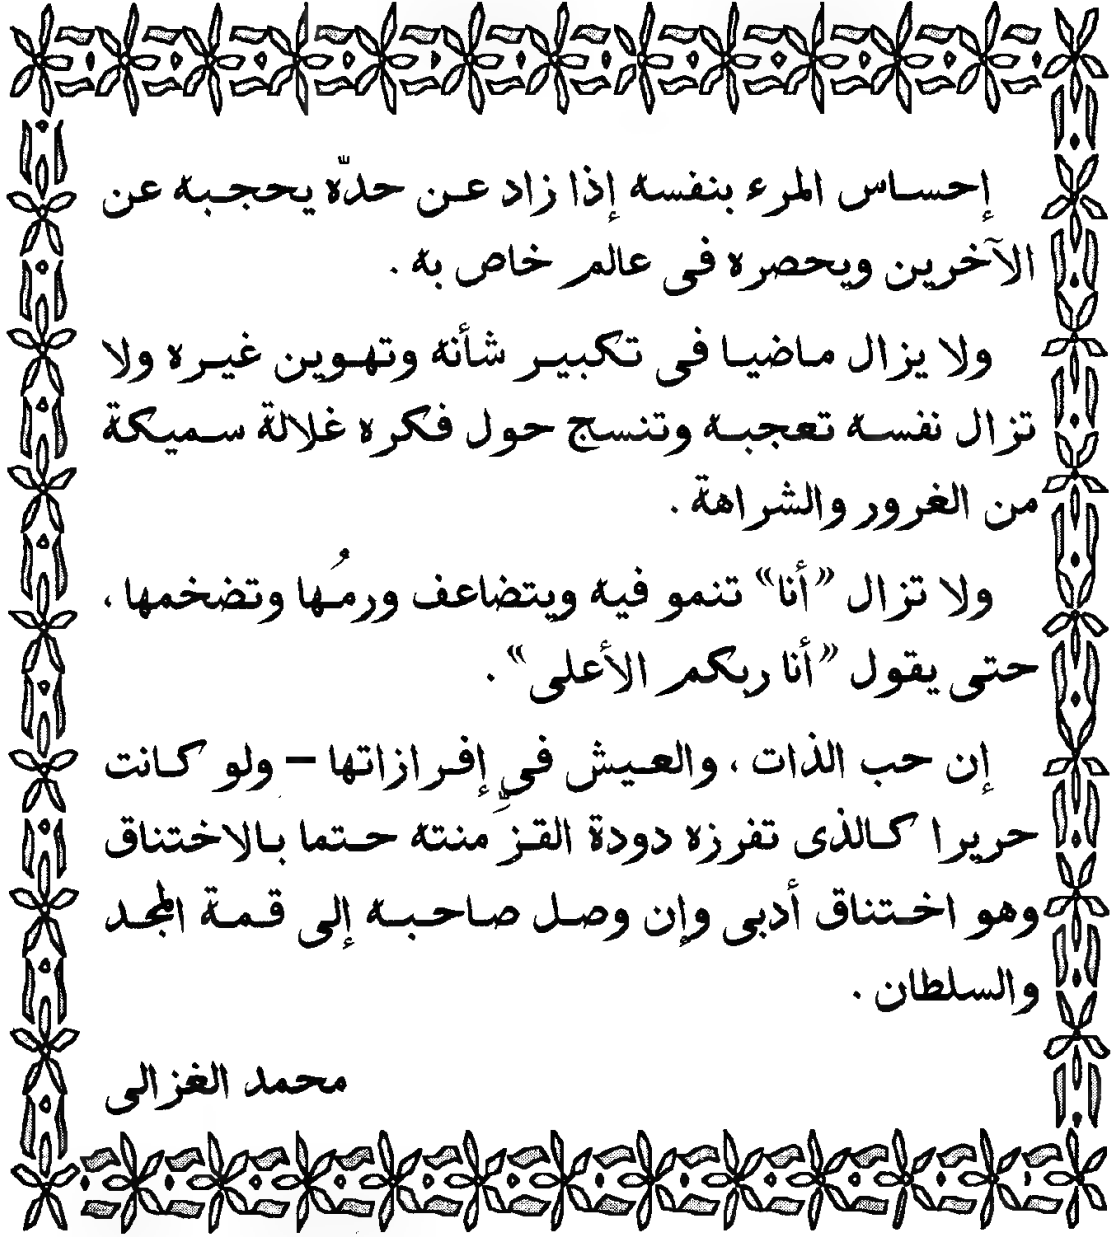 إحساس المرء بنفسه إذا زاد عن حدّه يحجبه عن
الآخرين ويحصره فى عالم خاص به .
ولا يزال ماضيا فى تكبير شأنه وتهوين غيره ولا
تزال نفسه تعجبه وتنسج حول فكره غلالة سميكة
من الغرور والشراهة .
ولا تزال «أنا» تنمو فيه ويتضاعف ورمُها وتضخمها ،
حتى يقول «أنا ربكم الأعلى» .
إن حب الذات ، والعيش فى إفرازاتها – ولو كانت
حريرا كالذى تفرزه دودة القزّ منته حتما بالاختناق
وهو اختناق أدبى وإن وصل صاحبه إلى قمة المجد
والسلطان .
محمد الغزالى